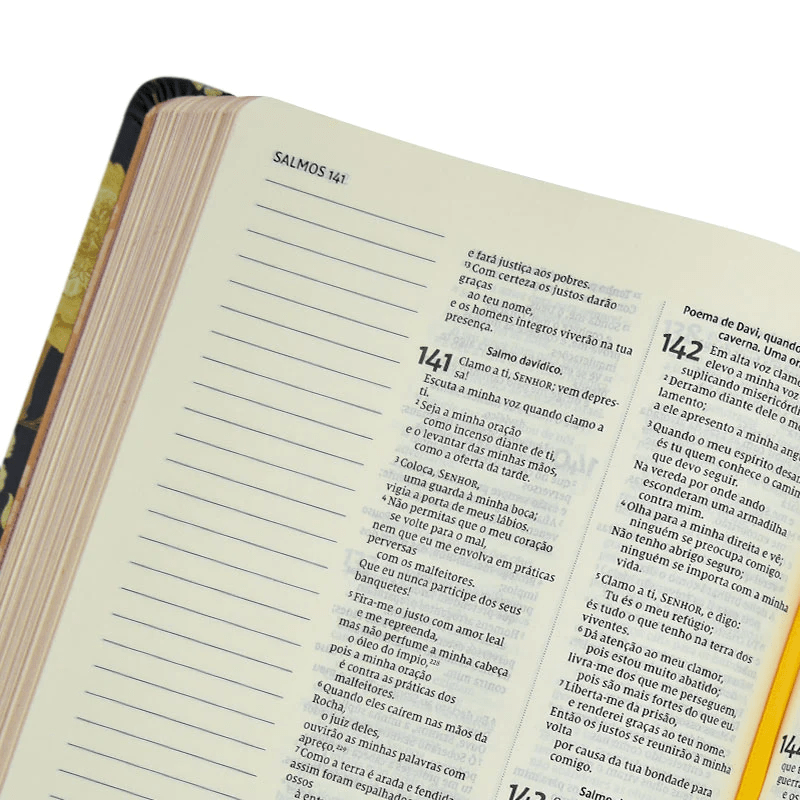 SALMOS 141
e fará justiça aos pobres.
13 Com certeza os justos darão
graças
ao teu nome,
e os homens íntegros viverão na tua
presença.
Salmo davídico.
141 Clamo a ti, SENHOR; vem depres-
sa!
Escuta a minha voz quando clamo a
ti.
2 Seja a minha oração
como incenso diante de ti,
e o levantar das minhas mãos,
como a oferta da tarde.
3 Coloca, SENHOR,
uma guarda à minha boca;
vigia a porta de meus lábios.
4 Não permitas que o meu coração
se volte para o mal,
nem que eu me envolva em práticas
perversas
com os malfeitores.
Que eu nunca participe dos seus
banquetes!
5 Fira-me o justo com amor leal
e me repreenda,
mas não perfume a minha cabeça
o óleo do ímpio,
pois a minha oração
é contra as práticas dos
malfeitores.
6 Quando eles caírem nas mãos da
Rocha,
o juiz deles,
ouvirão as minhas palavras com
apreço.
7 Como a terra é arada e fendida
assim foram espalhados
ossos
à
Poema de Davi, quando
caverna. Uma
142 Em alta voz
elevo a minha voz
suplicando
2 Derramo diante dele o
lamento;
a ele apresento a minha
3 Quando o meu espírito
és tu quem conhece o
que devo seguir.
Na vereda por onde ando
esconderam uma armadilha
contra mim.
4 Olha para a minha direita e vê;
ninguém se preocupa comigo.
Não tenho abrigo seguro;
ninguém se importa com a minha
vida.
5 Clamo a ti, SENHOR, e digo:
Tu és o meu refúgio;
és tudo o que tenho na terra dos
viventes.
6 Dá atenção ao meu clamor,
pois estou muito abatido;
livra-me dos que me perseguem,
pois são mais fortes do que eu.
7 Liberta-me da prisão,
e renderei graças ao teu nome.
Então os justos se reunirão à minha
volta
por causa da tua bondade para
comigo.
Salmo
143
144
que
e os